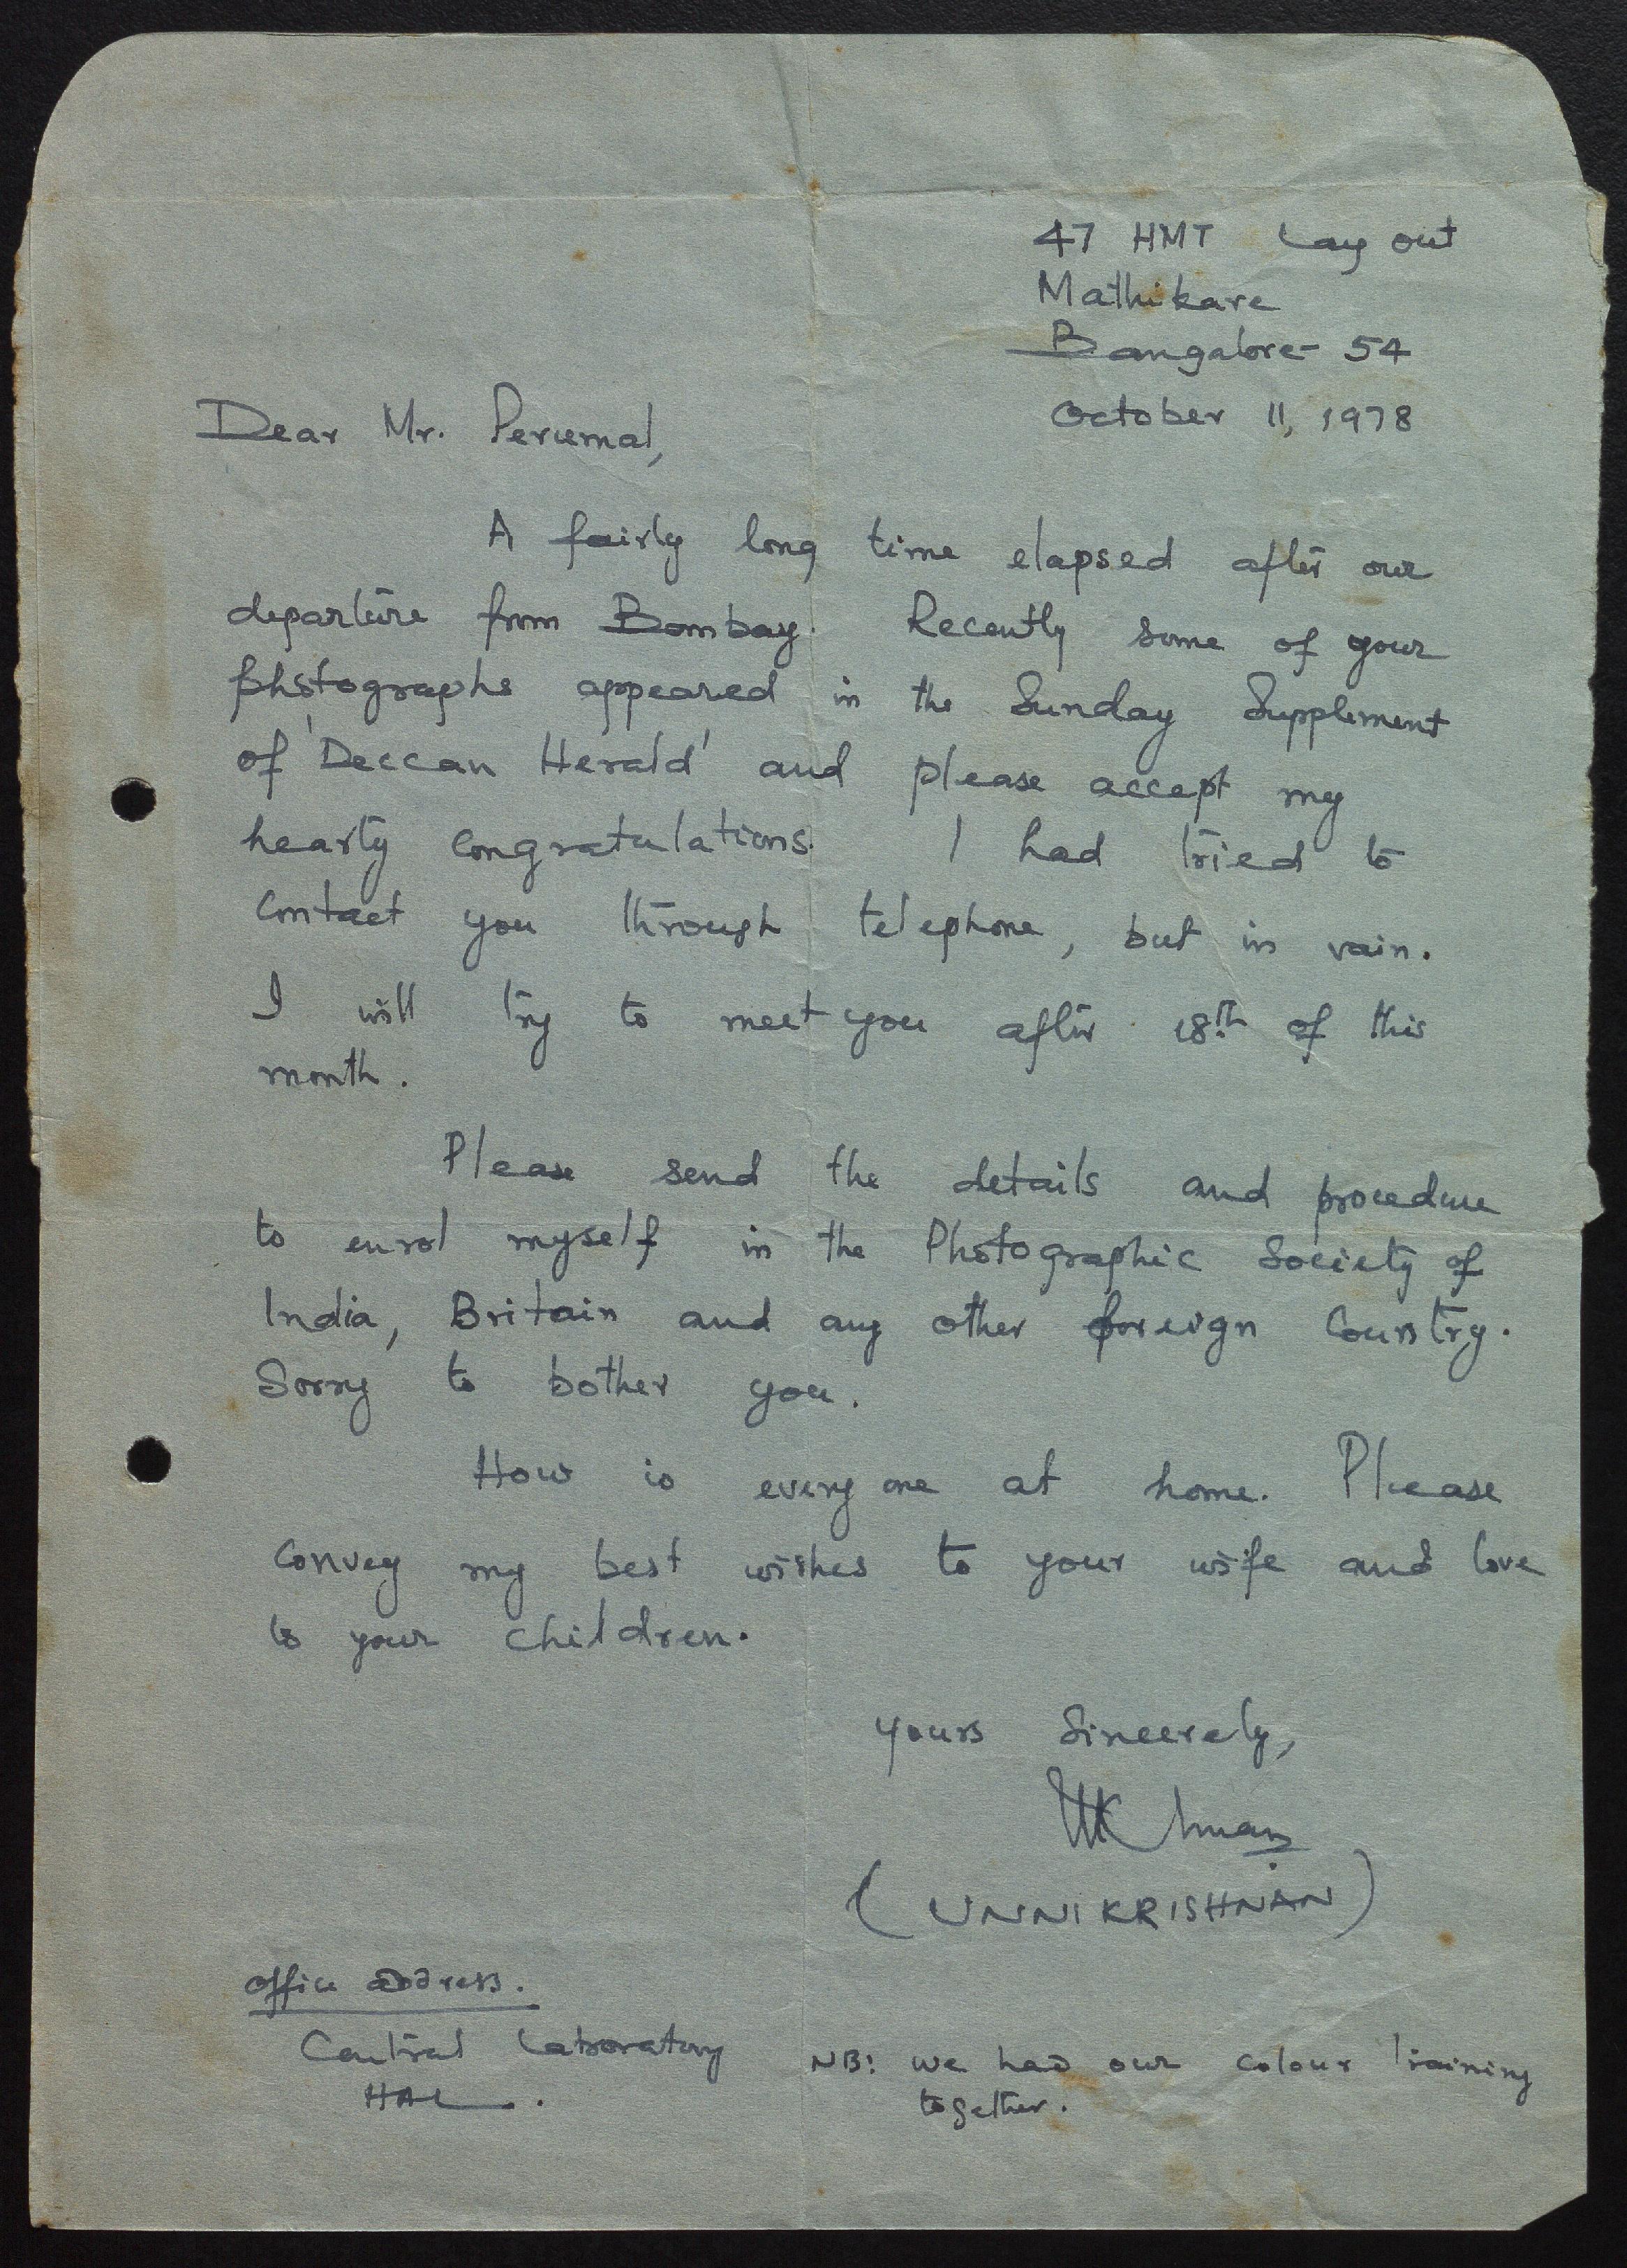 47 HMT Lay out
Mathikare
Bangalore - 54
October 11, 1978
Dear Mr. Perumal,
A fairly long time elapsed after our
departure from Bombay. Recently some of your
photographs appeared in the Sunday Supplement
of 'Deccan Herald' and please accept my
hearty congratulations. I had tried to
contact you through telephone, but in vain.
I will try to meet you after 18th of this
month.
Please send the details and procedure
to enrol myself in the Photographic Society of
India, Britain and any other foreign Country.
Sorry to bother you.
How is every one at home. Please
convey my best wishes to your wife and love
to your children.
Yours Sincerely,
(UNNIKRISHNAN)
Office address.
Central Laboratory
HAL.
NB: We had our colour training
together.